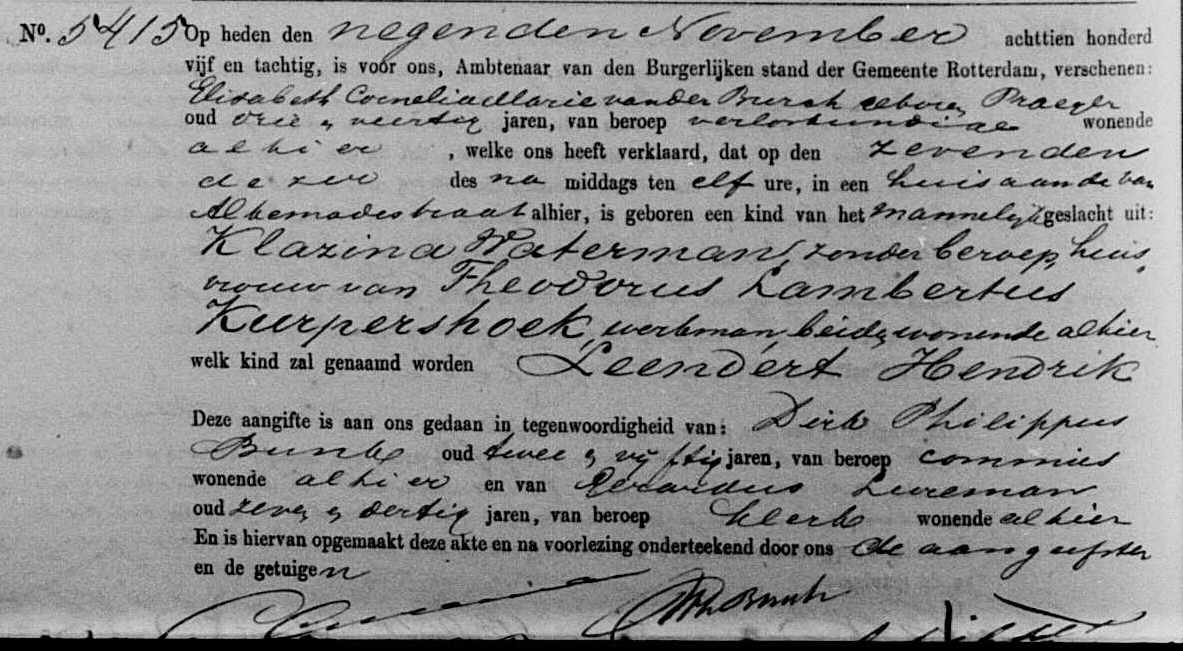 No. 5415 Op heden den negenden November achttien honderd
vijf en tachtig, is voor ons, Ambtenaar van den Burgerlijken stand der Gemeente Rotterdam, verschenen:
Elisabeth Cornelia Maria van der Burch geboren Praeger
oud drie & veertig jaren, van beroep verloskundige wonende
alhier, welke ons heeft verklaard, dat op den zevenden
dezer des na middags ten elf ure, in een huis aan de van
Alkemadestraat alhier, is geboren een kind van het mannelijk geslacht uit:
Klazina Waterman, zonder beroep, huis
vrouw van Theodorus Lambertus
Kurpershoek, werkman, beide wonende alhier
welk kind zal genaamd worden Leendert Hendrik
Deze aangifte is aan ons gedaan in tegenwoordigheid van: Dirk Philippus
oud twee & vijftig jaren, van beroep commies
wonende alhier en van Gerardus Lureman
oud zeven & dertig jaren, van beroep klerk wonende alhier
En is hiervan opgemaakt deze akte en na voorlezing onderteekend door ons de aangeefster
en de getuigen